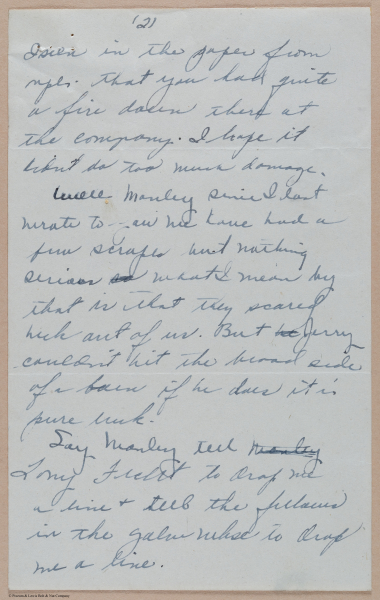 (2)
I seen in the paper from
mpls. that you had quite
a fire down there at
the company. I hope it
didn't do too much damage.
Well Manley since I last
wrote to you we have had a
few scrapes but nothing
serious so what I mean by
that is that they scared
heck out of us. But he jerry
couldn't hit the broad side
of a barn if he does it is
pure luck.
Say Manley tell Manley
Tony to drop me
a line & tell the fellows
in the galv whse to drop
me a line.